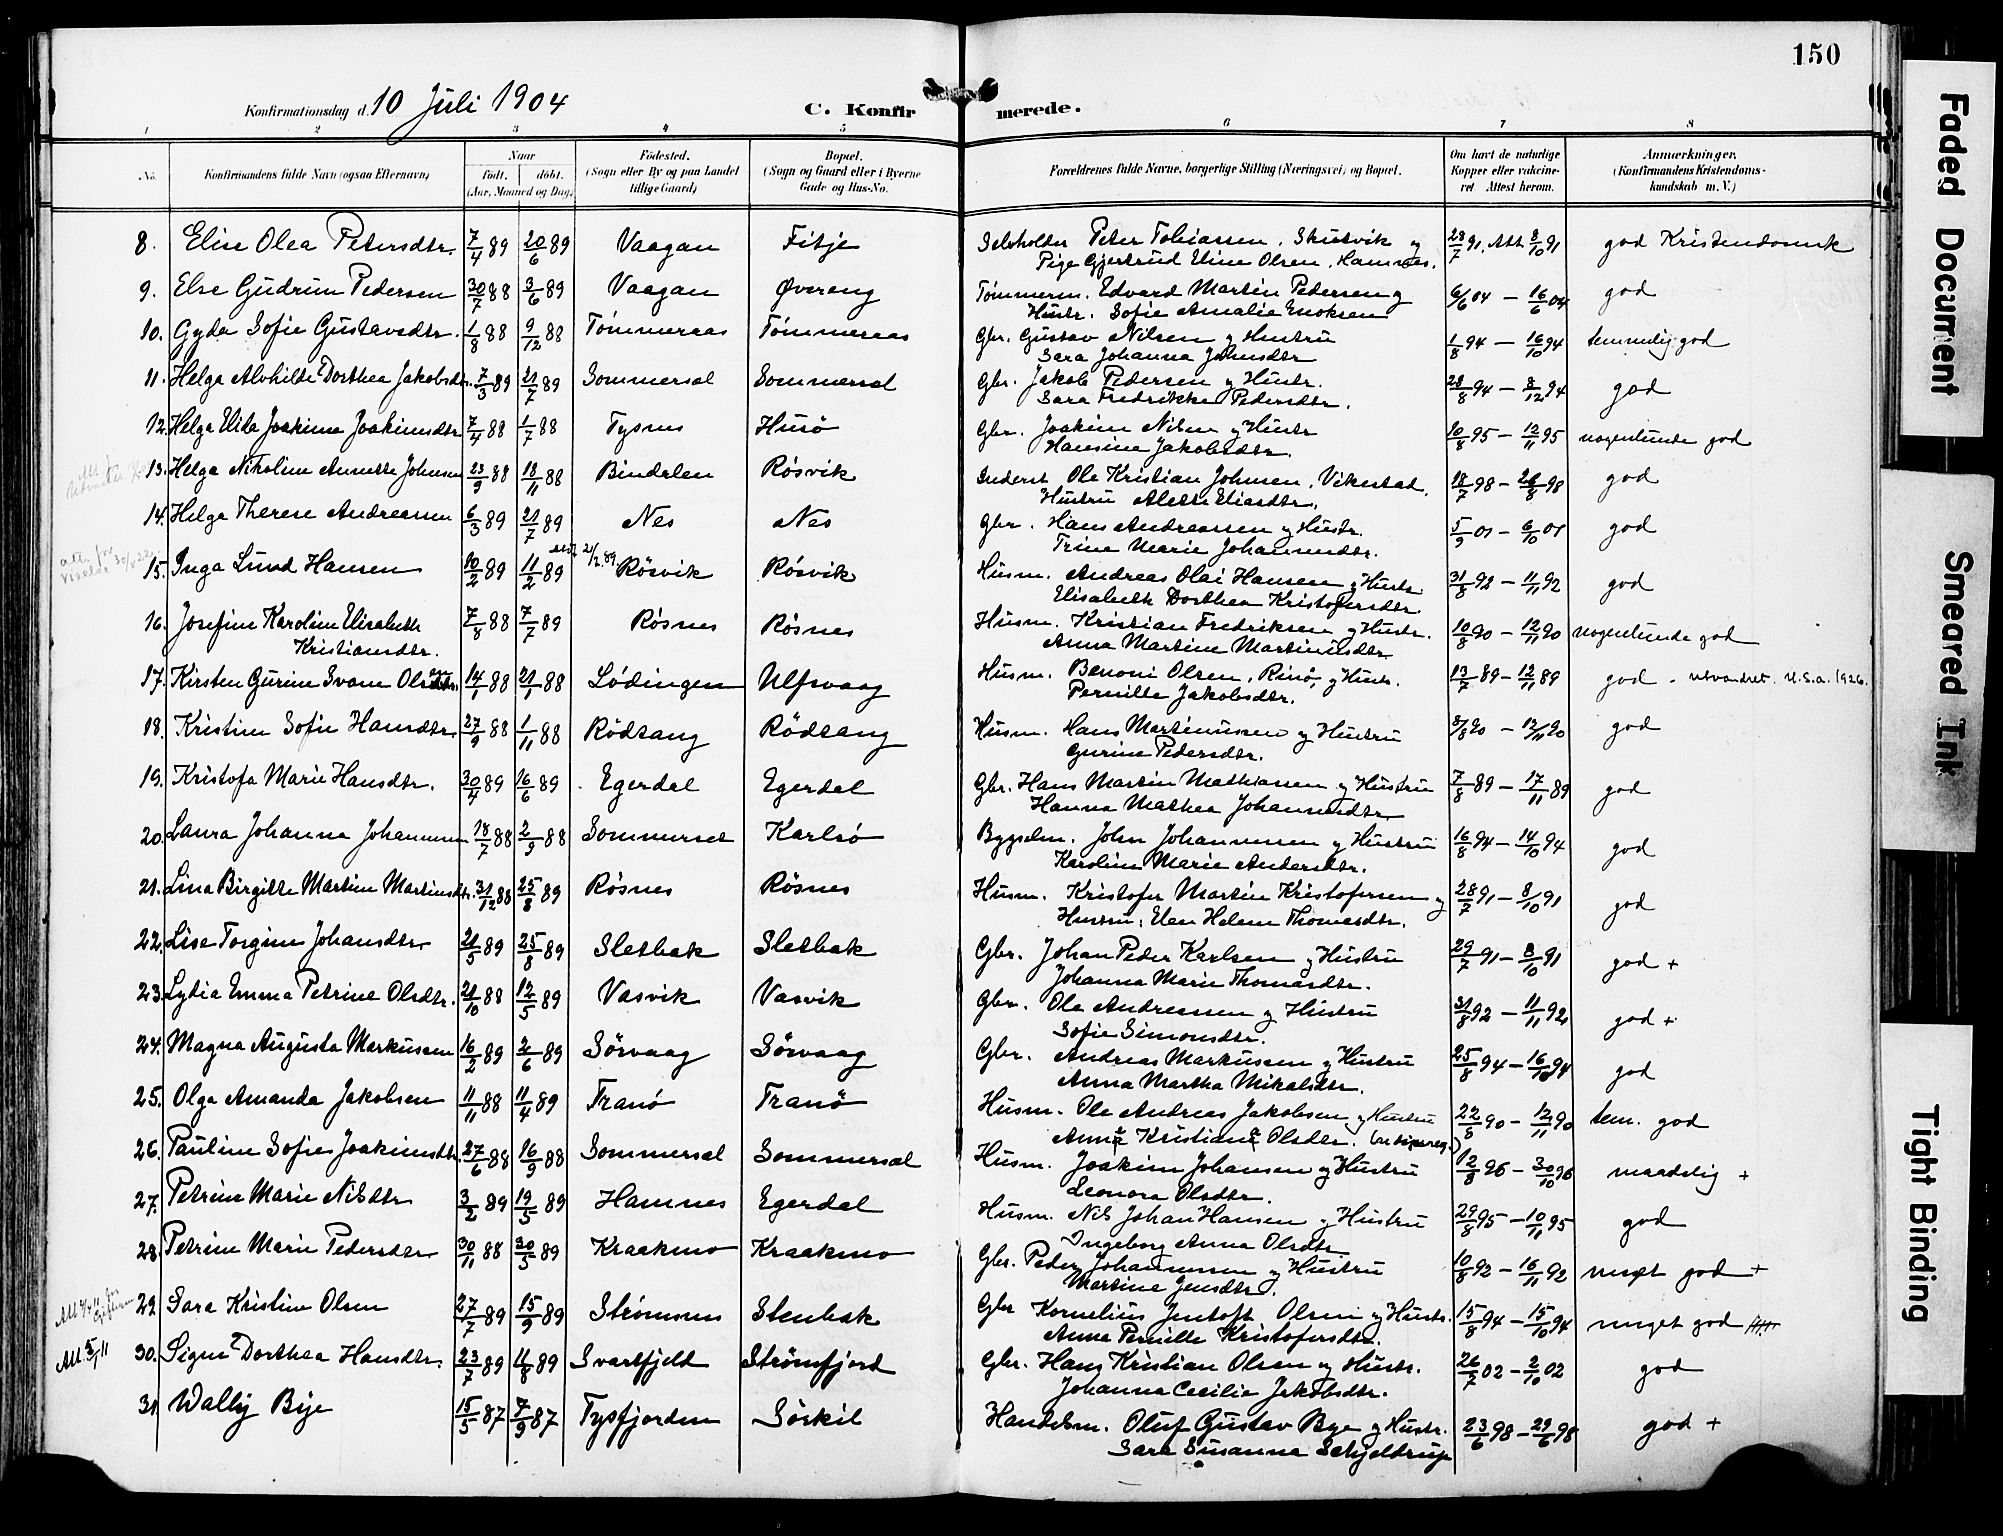 150
Konfirmationsdag d. 10 Juli 1904 C. Konfirmerede.
1 2 3 4 5 6 7 8
No. Konfirmandens fulde Navn (ogsaa Efternavn) Naar født. døbt. (Aar, Maaned og Dag) Fødested. (Sogn eller By og paa Landet tillige Gaard) Bopæl. (Sogn og Gaard eller i Byerne Gade og Hus-No. Forældrenes fulde Navne, borgerlige Stilling (Næringsvei) og Bopæl. Om havt de naturlige Kopper eller vakcineret Attest herom. Anmærkninger. (Konfirmandens Kristendomskundskab m. V.)
8. Elise Olea Petersdtr. 7/4 89 20/6 89 Vaagan Fitje Selvholder Peter Tobiassen, Skutvik og 28/7 91. Att 8/10 91 god Kristendomsk
Pige Gjertrud Eline Olsen, Hamnes.
9. Else Gudrun Pedersen 30/7 88 3/6 89 Vaagan Øvereng Tømmerm. Edvard Martin Pedersen og 6/6 04 – 16/6 04 god
Hustr. Sofie Amalie Enoksen
10. Gyda Sofie Gustavsdtr. 1/8 88 9/12 88 Tømmeraas Tømmeraas Gbr. Gustav Nilsen og Hustru 1/8 94 – 16/10 94 temmelig god
Sara Johanna Johnsdtr
11. Helga Alvhilde Dorthea Jakobsdtr. 7/3 89 21/7 89 Sommersel Sommersel Gbr. Jakob Pedersen og Hustr. 28/8 94 – 8/12 94 god
Sara Fredrikke Pedersdtr.
12. Helga Elida Joakime Joakimsdtr 7/4 88 1/7 88 Tysnes Husø Gbr. Joakim Nilsen og Hustr 10/8 95 – 12/11 95 nogenlunde god
Hansine Jakobsdtr.
13. Helga Nikoline Annette Johnsen 23/9 88 18/11 88 Bindalen Røsvik Inderst Ole Kristian Johnsen, Vikestad, 18/7 98 – 26/8 98 god
Hustru Alette Eliasdtr.
14. Helga Therese Andreassen 6/3 89 21/7 89 Nes Nes Gbr. Hans Andreassen og Hustr. 5/9 01 – 6/10 01 god
Trine Marie Johannesdtr.
15. Inga Lund Hansen 10/2 89 11/2 89 21/7. 89 Røsvik Røsvik Husm. Andreas Olai Hansen og Hustr 31/8 92 – 11/11 92 god
Elisabeth Dorthea Kristofersdtr
16. Josefine Karoline Elisabeth 7/8 88 7/7 89 Røsnes Røsnes Husm. Kristian Fredriksen og Hustr. 10/8 90 – 12/11 90 nogenlunde god
Kristiansdtr. Anna Martine Martinusdtr
17. Kirsten Gurine Svane 14/1 88 21/1 88 Lødingen Ulfsvaag Husm. Benoni Olsen, Rinø, og Hustr. 13/7 89 – 12/11 89 god – utvandret. U.S.A. 1926.
Pernille Jakobsdtr.
18. Kristine Sofie Hansdtr 27/9 88 1/11 88 Rødsang Rødsang Husm. Hans Martinussen og Hustru 3/8 90 – 12/11 90 god
Gurine Pedersdtr.
19. Kristofa Marie Hansdtr. 30/4 89 16/6 89 Egerdal Egerdal Gbr. Hans Martin Mathiassen og Hustru 7/8 89 – 17/11 89 god
Hanna Mathea Johannesdtr
20. Laura Johanna Johannessen 18/7 88 2/9 88 Sommerset Karlsø Bygselm. John Johannessen og Hustru 16/8 94 – 14/10 94 god
Karoline Marie Andersdtr.
21. Lina Birgitte Martine Martinsdtr. 31/12 88 25/8 89 Røsnes Røsnes Husm. Kristofer Martin Kristofersen og 28/7 91 – 8/10 91 god
Hustru, Elen Helene Thomasdtr.
22. Lise Torgine Johansdtr 21/5 89 25/8 89 Sletbak Sletbak Gbr. Johan Peder Karlsen og Hustru 29/7 91 – 8/10 91 god +
Johanna Marie Thomasdtr.
23. Lydia Emma Petrine Olsdtr. 21/10 88 12/5 89 Vasvik Vasvik Gbr. Ole Andreassen og Hustru 31/8 92 – 11/11 92 god +
Sofie Simonsdtr.
24. Magna Augusta Markussen 16/2 89 2/6 89 Sørvaag Sørvaag Gbr. Andreas Markussen og Hustru 25/8 94 – 16/10 94 god
Anna Martha Mikalsdtr.
25. Olga Amanda Jakobsen 11/11 88 11/4 89 Tranø Tranø Husm. Ole Andreas Jakobsen og Hustru 22/8 90 – 12/11 90 tem. god
Anna Kristiana Olsdtr.
26. Pauline Sofie Joakimsdtr. 27/6 88 16/9 88 Sommersel Sommersel Husm. Joakim Johansen og Hustru 12/8 96 – 30/10 96 maadelig +
Leonora Olsdtr.
27. Petrine Marie Nilsdtr 3/2 89 19/5 89 Hamnes Egerdal Husm. Nils Johan Hansen og Hustru 29/8 95 – 10/11 95 god
Ingeborg Anna Olsdtr
28. Petrine Marie Pedersdtr 30/11 88 30/5 89 Kraakmo Kraakmo Gbr. Peder Johannessen og Hustru 10/8 92 – 16/11 92 meget god +
Martine Jensdtr.
29. Sara Kristine Olsen 27/7 89 15/9 89 Strømsnes Stenbak Gbr Kornelius Jentoft Olsen og Hustr. 15/8 94 – 15/10 94 meget god
Anna Pernille Kristofersdtr.
Att. 5/1 11 30. Signe Dorthea Hansdtr. 23/7 89 11/8 89 Svartfjeld Strømfjord Gbr. Hans Kristian Olsen og Hustr. 26/7 02 – 2/10 02 god
Johanna Cecilie Jakobsdtr.
31 Wally Bye 15/5 87 7/9 87 Tysfjorden Sørkil Handelsm. Oluf Gustav Bye og Hustr. 23/6 98 – 29/6 98 god +
Sara Susanna Schjeldrup
Faded Document
Smeared Ink
Tight Binding